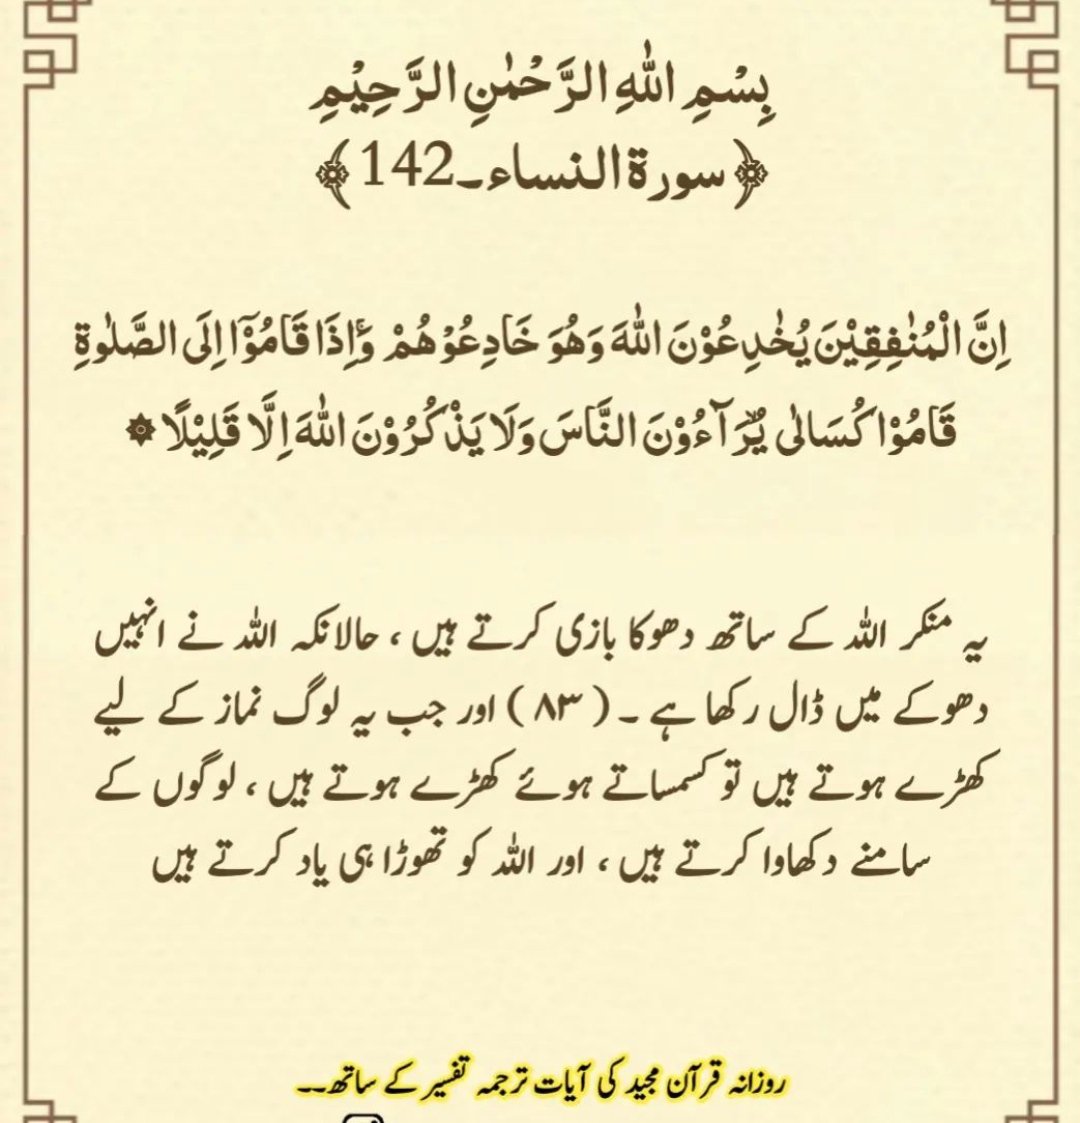 بِسْمِ اللّٰهِ الرَّحْمٰنِ الرَّحِيْمِ
﴿سورة النساء۔142﴾
اِنَّ الْمُنٰفِقِيْنَ يُخٰدِعُوْنَ اللّٰهَ وَهُوَ خَادِعُوْهُمْ ۚ وَاِذَا قَامُوْۤا اِلَى الصَّلٰوةِ
قَامُوْا كُسَالٰى يُرَآءُوْنَ النَّاسَ وَلَا يَذْكُرُوْنَ اللّٰهَ اِلَّا قَلِيْلًا
یہ منکر اللہ کے ساتھ دھوکا بازی کرتے ہیں ، حالانکہ اللہ نے انہیں
دھوکے میں ڈال رکھا ہے ۔ ( ۸۳ ) اور جب یہ لوگ نماز کے لیے
کھڑے ہوتے ہیں تو کسمساتے ہوئے کھڑے ہوتے ہیں ، لوگوں کے
سامنے دکھاوا کرتے ہیں ، اور اللہ کو تھوڑا ہی یاد کرتے ہیں
روزانہ قرآن مجید کی آیات ترجمہ تفسیر کے ساتھ۔۔